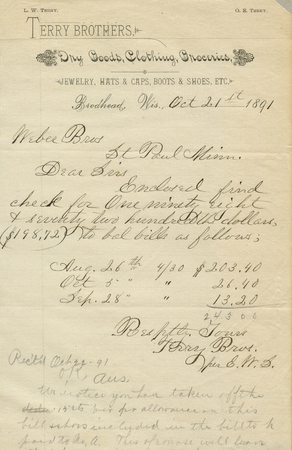 L. W. TERRY. O. E. TERRY.
TERRY BROTHERS,
Dry Goods, Clothing, Groceries,
JEWELRY, HATS & CAPS, BOOTS & SHOES, ETC.
Brodhead, Wis, Oct 21st 1891
Weber Bros
St Paul Minn.
Dear Sirs
Enclosed find
check for One ninety eight
& seventy two hundredths dollars,
($198,72) to bal bills as follows;
Aug. 26th 4/30 $203.40
Oct 5 " " 26.40
Sep. 28 " " 13.20
243 00
Respfty Yours
Terry Bros.
per E. W. S.
91
Ans.
notice you have taken off the
for allowance on this
bill included in the bill to
paid to This of course will leave